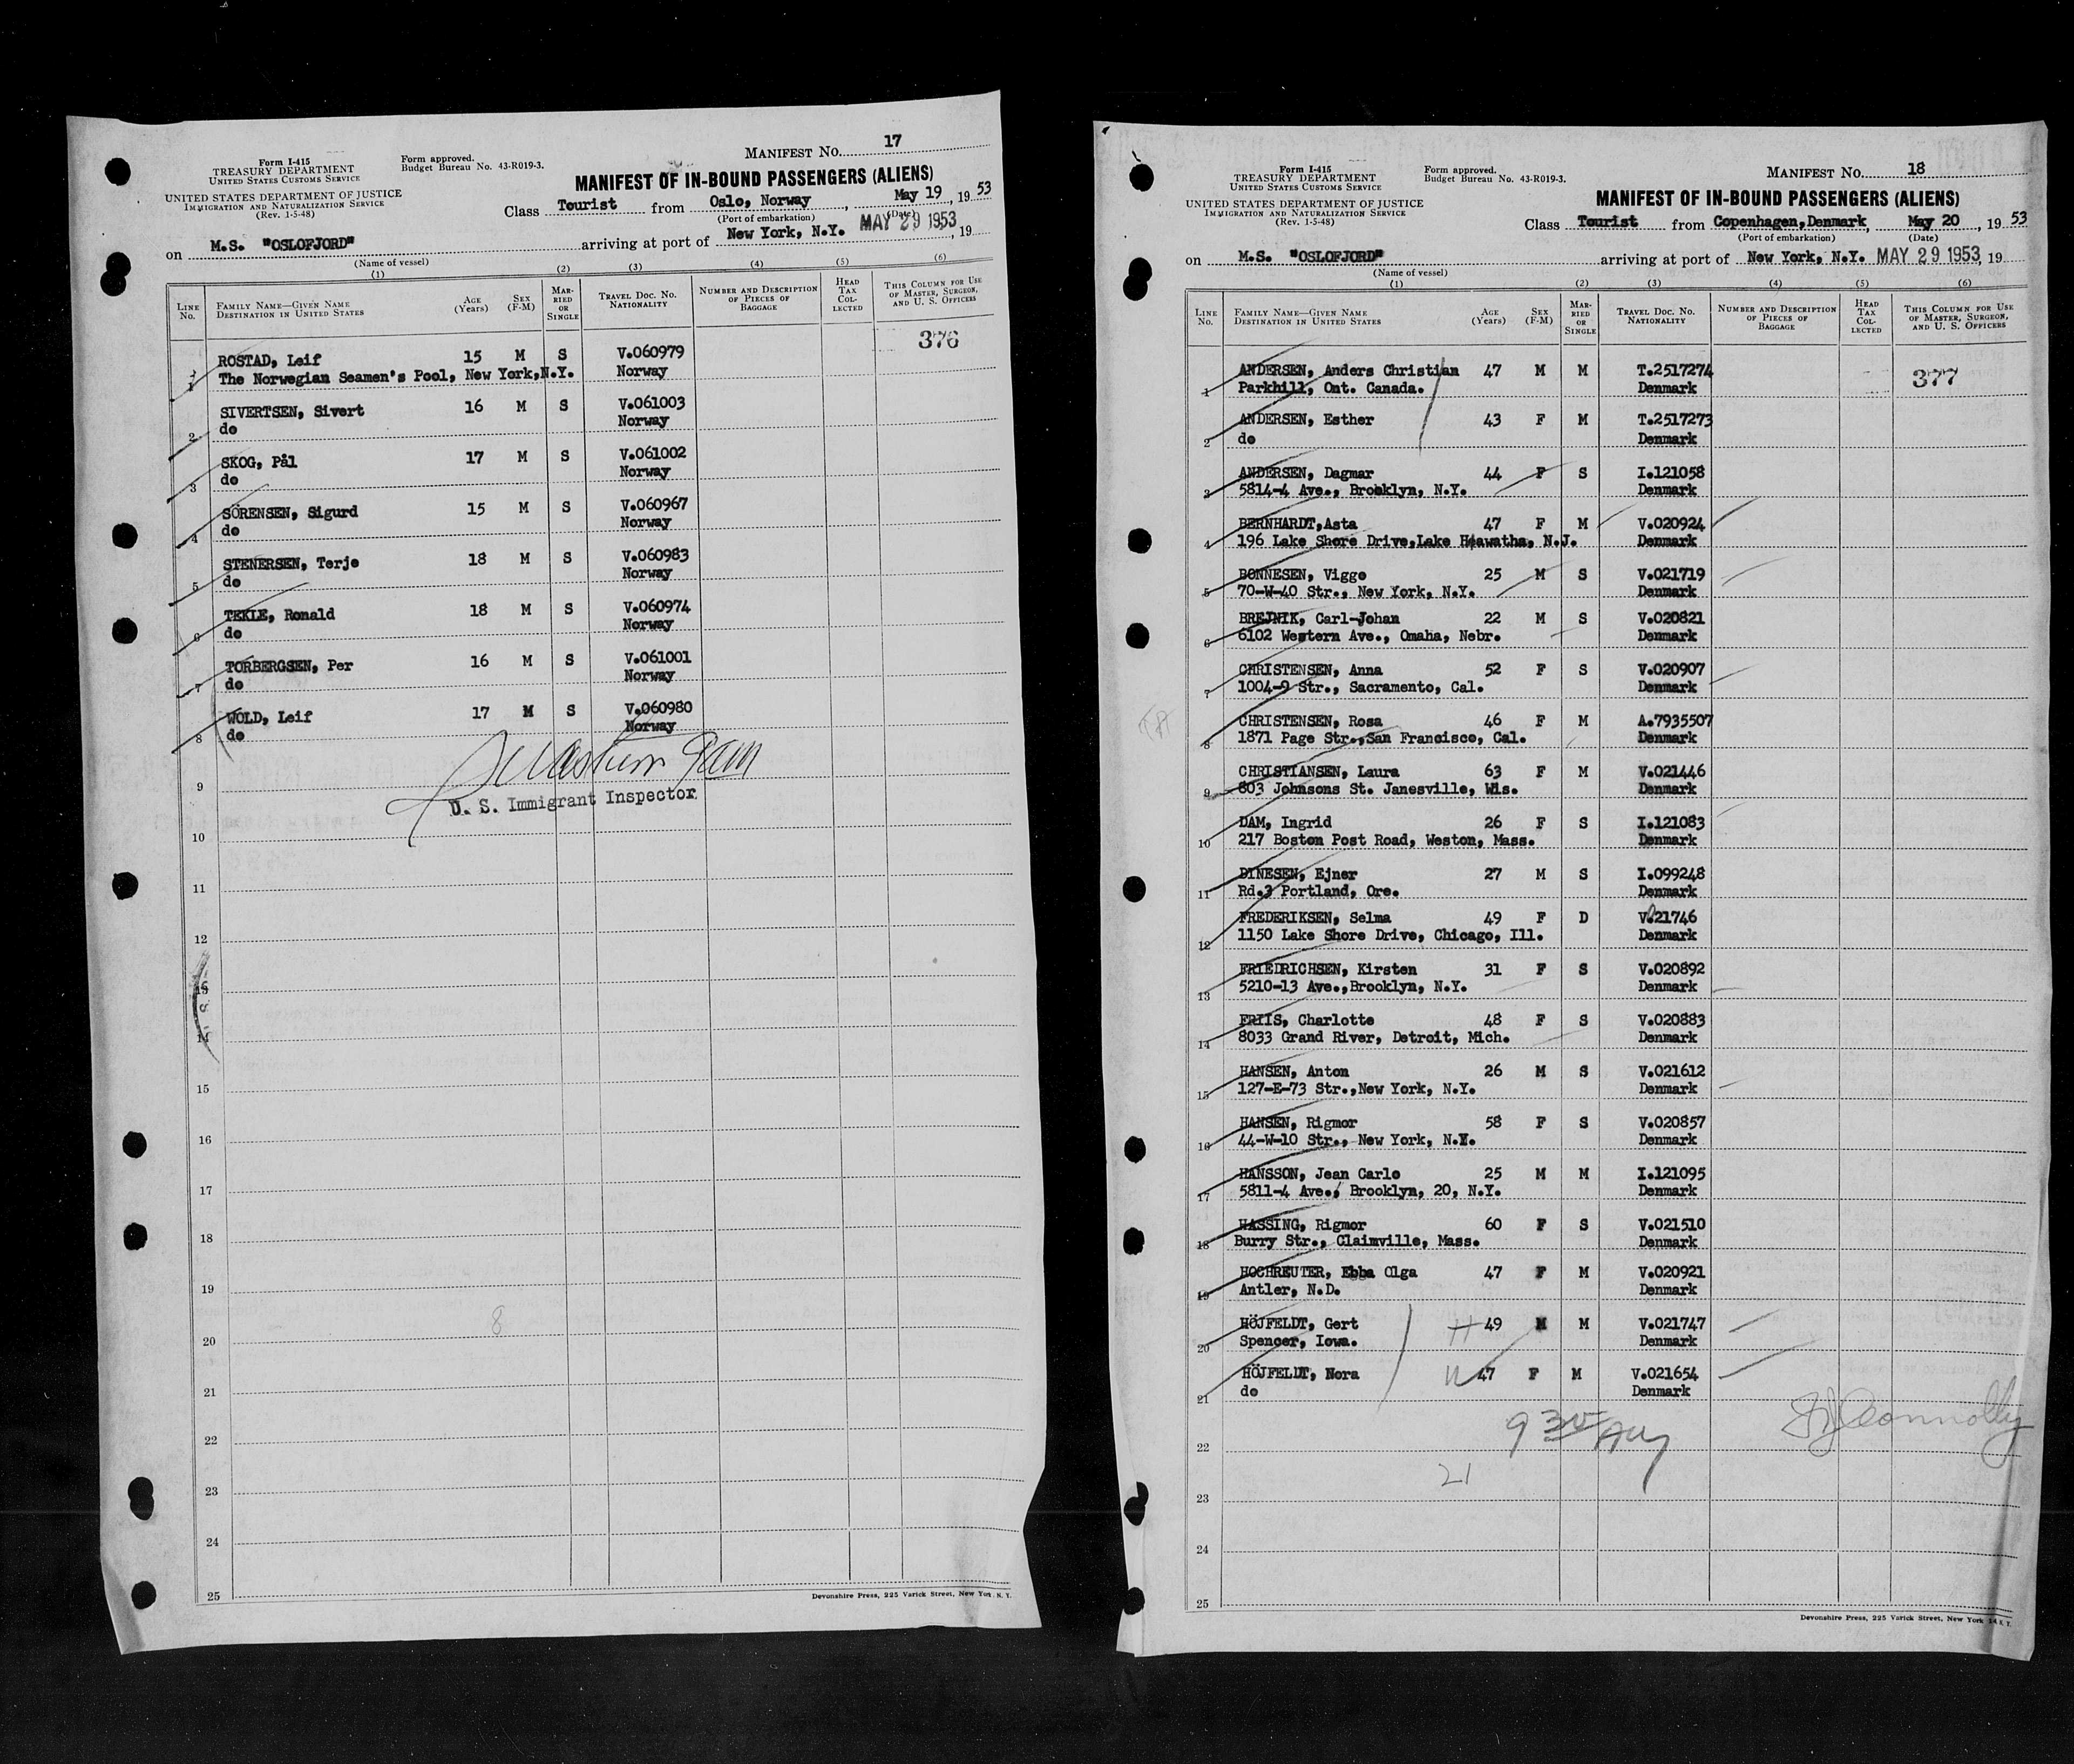 Form I-415
TREASURY DEPARTMENT
UNITED STATES CUSTOMS SERVICE
UNITED STATES DEPARTMENT OF JUSTICE
IMMIGRATION AND NATURALIZATION SERVICE
(Rev. 1-5-48)
Form approved.
Budget Bureau No. 43-R019-3.
MANIFEST NO. 17
MANIFEST OF IN-BOUND PASSENGERS (ALIENS)
Class Tourist from Oslo, Norway, May 19, 1953
(Port of embarkation) (Date)
on M.S. "OSLOFJORD" arriving at port of New York, N.Y. MAY 29 1953, 19
(Name of vessel)
(1) (2) (3) (4) (5) (6)
LINE NO. FAMILY NAME—GIVEN NAME DESTINATION IN UNITED STATES AGE (YEARS) SEX (F-M) MARRIED OR SINGLE TRAVEL DOC. NO. NATIONALITY NUMBER AND DESCRIPTION OF PIECES OF BAGGAGE HEAD TAX COLLECTED THIS COLUMN FOR USE OF MASTER, SURGEON, AND U. S. OFFICERS
376
1 ROSTAD, Leif 15 M S V.060979
The Norwegian Seamen's Pool, New York,N.Y. Norway
2 SIVERTSEN, Sivert 16 M S V.061003
do Norway
3 SKOG, Pål 17 M S V.061002
do Norway
4 SÖRENSEN, Sigurd 15 M S V.060967
do Norway
5 STENERSEN, Terje 18 M S V.060983
do Norway
6 TEKLE, Ronald 18 M S V.060974
do Norway
7 TORBERGSEN, Per 16 M S V.061001
do Norway
8 WOLD, Leif 17 M S V.060980
do Norway
9
U. S. Immigrant Inspector
10
11
12
13
14
15
16
17
18
19
8
20
21
22
23
24
25
Devonshire Press, 225 Varick Street, New York N. Y.
Form I-415
TREASURY DEPARTMENT
UNITED STATES CUSTOMS SERVICE
UNITED STATES DEPARTMENT OF JUSTICE
IMMIGRATION AND NATURALIZATION SERVICE
(Rev. 1-5-48)
Form approved.
Budget Bureau No. 43-R019-3.
MANIFEST NO. 18
MANIFEST OF IN-BOUND PASSENGERS (ALIENS)
Class Tourist from Copenhagen,Denmark, May 20, 1953
(Port of embarkation) (Date)
on M.S. "OSLOFJORD" arriving at port of New York, N.Y. MAY 29 1953, 19
(Name of vessel)
(1) (2) (3) (4) (5) (6)
LINE NO. FAMILY NAME—GIVEN NAME DESTINATION IN UNITED STATES AGE (YEARS) SEX (F-M) MARRIED OR SINGLE TRAVEL DOC. NO. NATIONALITY NUMBER AND DESCRIPTION OF PIECES OF BAGGAGE HEAD TAX COLLECTED THIS COLUMN FOR USE OF MASTER, SURGEON, AND U. S. OFFICERS
377
1 ANDERSEN, Anders Christian 47 M M T.2517274
Parkhill, Ont. Canada. Denmark
2 ANDERSEN, Esther 43 F M T.2517273
do Denmark
3 ANDERSEN, Dagmar 44 F S I.121058
5814-4 Ave., Brooklyn, N.Y. Denmark
4 BERNHARDT,Asta 47 F M V.020924
196 Lake Shore Drive,Lake Hiawatha, N.J. Denmark
5 BONNESEN, Viggo 25 M S V.021719
70-W-40 Str., New York, N.Y. Denmark
6 BREJNIK, Carl-Johan 22 M S V.020821
6102 Western Ave., Omaha, Nebr. Denmark
7 CHRISTENSEN, Anna 52 F S V.020907
1004-9 Str., Sacramento, Cal. Denmark
8 CHRISTENSEN, Rosa 46 F M A.7935507
1871 Page Str.,San Francisco, Cal. Denmark
9 CHRISTIANSEN, Laura 63 F M V.021446
803 Johnsons St. Janesville, Wis. Denmark
10 DAM, Ingrid 26 F S I.121083
217 Boston Post Road, Weston, Mass. Denmark
11 DINESEN, Ejner 27 M S I.099248
Rd.3 Portland, Ore. Denmark
12 FREDERIKSEN, Selma 49 F D V.021746
1150 Lake Shore Drive, Chicago, Ill. Denmark
13 FRIEDRICHSEN, Kirsten 31 F S V.020892
5210-13 Ave.,Brooklyn, N.Y. Denmark
14 FRIIS, Charlotte 48 F S V.020883
8033 Grand River, Detroit, Mich. Denmark
15 HANSEN, Anton 26 M S V.021612
127-E-73 Str.,New York, N.Y. Denmark
16 HANSEN, Rigmor 58 F S V.020857
44-W-10 Str., New York, N.Y. Denmark
17 HANSSON, Jean Carlo 25 M M I.121095
5811-4 Ave., Brooklyn, 20, N.Y. Denmark
18 HASSING, Rigmor 60 F S V.021510
Burry Str., Claimville, Mass. Denmark
19 HOCHREUTER, Ebba Olga 47 F M V.020921
Antler, N.D. Denmark
20 HÖJFELDT, Gert H 49 M M V.021747
Spencer, Iowa. Denmark
21 HÖJFELDT, Nora W 47 F M V.021654
do Denmark
22
21
23
24
25
Devonshire Press, 225 Varick Street, New York 14 N. Y.